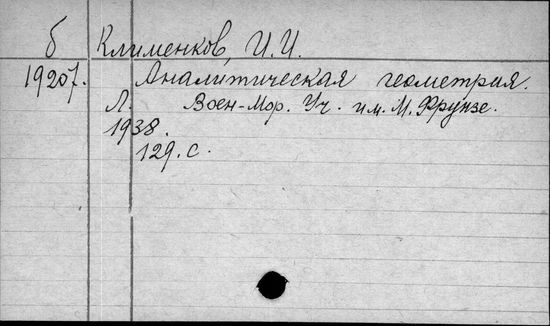 б Клименков, И.И.
19207. Аналитическая геометрия.
Л. Воен-Мор. Уч. им. М. Фрунзе.
1938.
129. с.